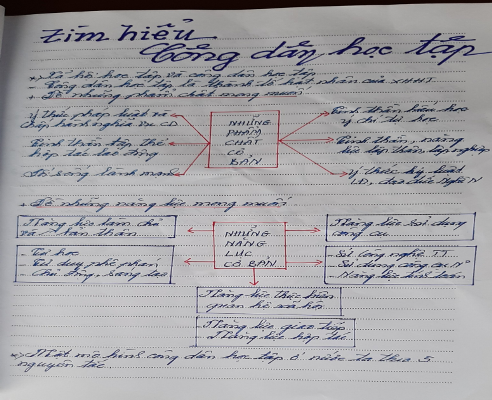 Tìm hiểu
Công dân học tập
+) Từ hồ học tập và công dân học tập
- Công dân học tập là thành tố hạt nhân của XHHT
+ Về những phẩm chất mong muốn
ý thức pháp luật và
chấp hành nghĩa vụ CD
Tinh thần tập thể
hợp tác lao động
lối sống lành mạnh
NHỮNG
PHẨM
CHẤT
CƠ
BẢN
Tinh thần hiếu học
ý chí tự học
Tinh thần, năng
lực lập thân, lập nghiệp
ý thức kỷ luật
LĐ, đạo đức nghề N
+ Về những năng lực mong muốn
Năng lực làm chủ
và bản thân
- Tự học
- Tư duy phê phán
- Chủ động, sáng tạo
NHỮNG
NĂNG
LỰC
CƠ BẢN
Năng lực sử dụng
công cụ
- Sử công nghệ TT
- Sử dụng công cụ N
- Năng lực tính toán
Năng lực thực hiện
quan hệ xã hội
- Năng lực giao tiếp
- Năng lực hợp tác
=> Một mô hình công dân học tập ở nước ta theo 5
nguyên tắc